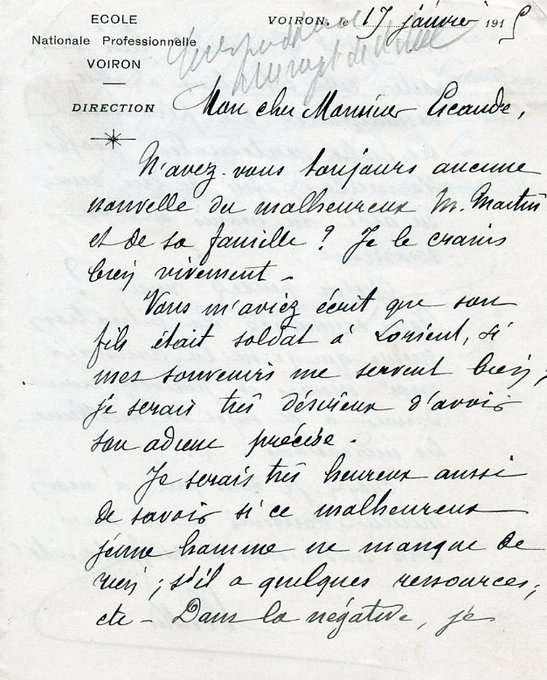 ECOLE
Nationale Professionnelle
VOIRON
DIRECTION
VOIRON, le 17 janvier 1915
Mon cher Monsieur Escande,
N'avez-vous toujours aucune
nouvelle du malheureux M. Martin
et de sa famille ? Je le crains
bien vivement -
Vous m'aviez écrit que son
fils était soldat à Lorient, si
mes souvenirs me servent bien ;
je serais très désireux d'avoir
son adresse précise.
Je serais très heureux aussi
de savoir si ce malheureux
jeune homme ne manque de
rien ; s'il a quelques ressources,
etc - Dans la négative, je